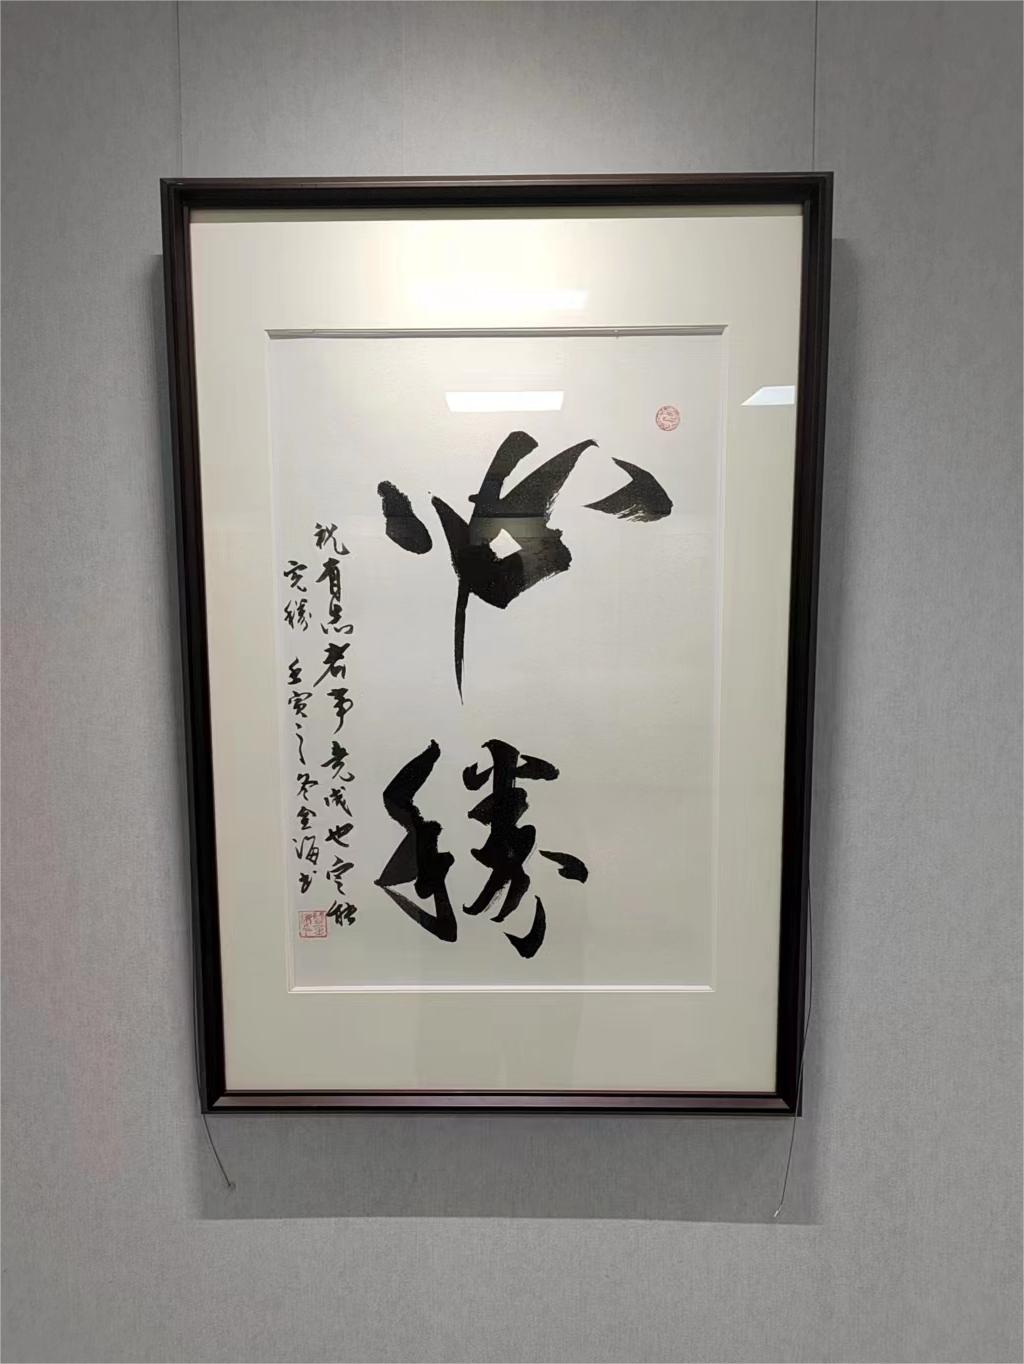 必勝
祝有志者事竟成也定能
完勝 壬寅之冬金海书